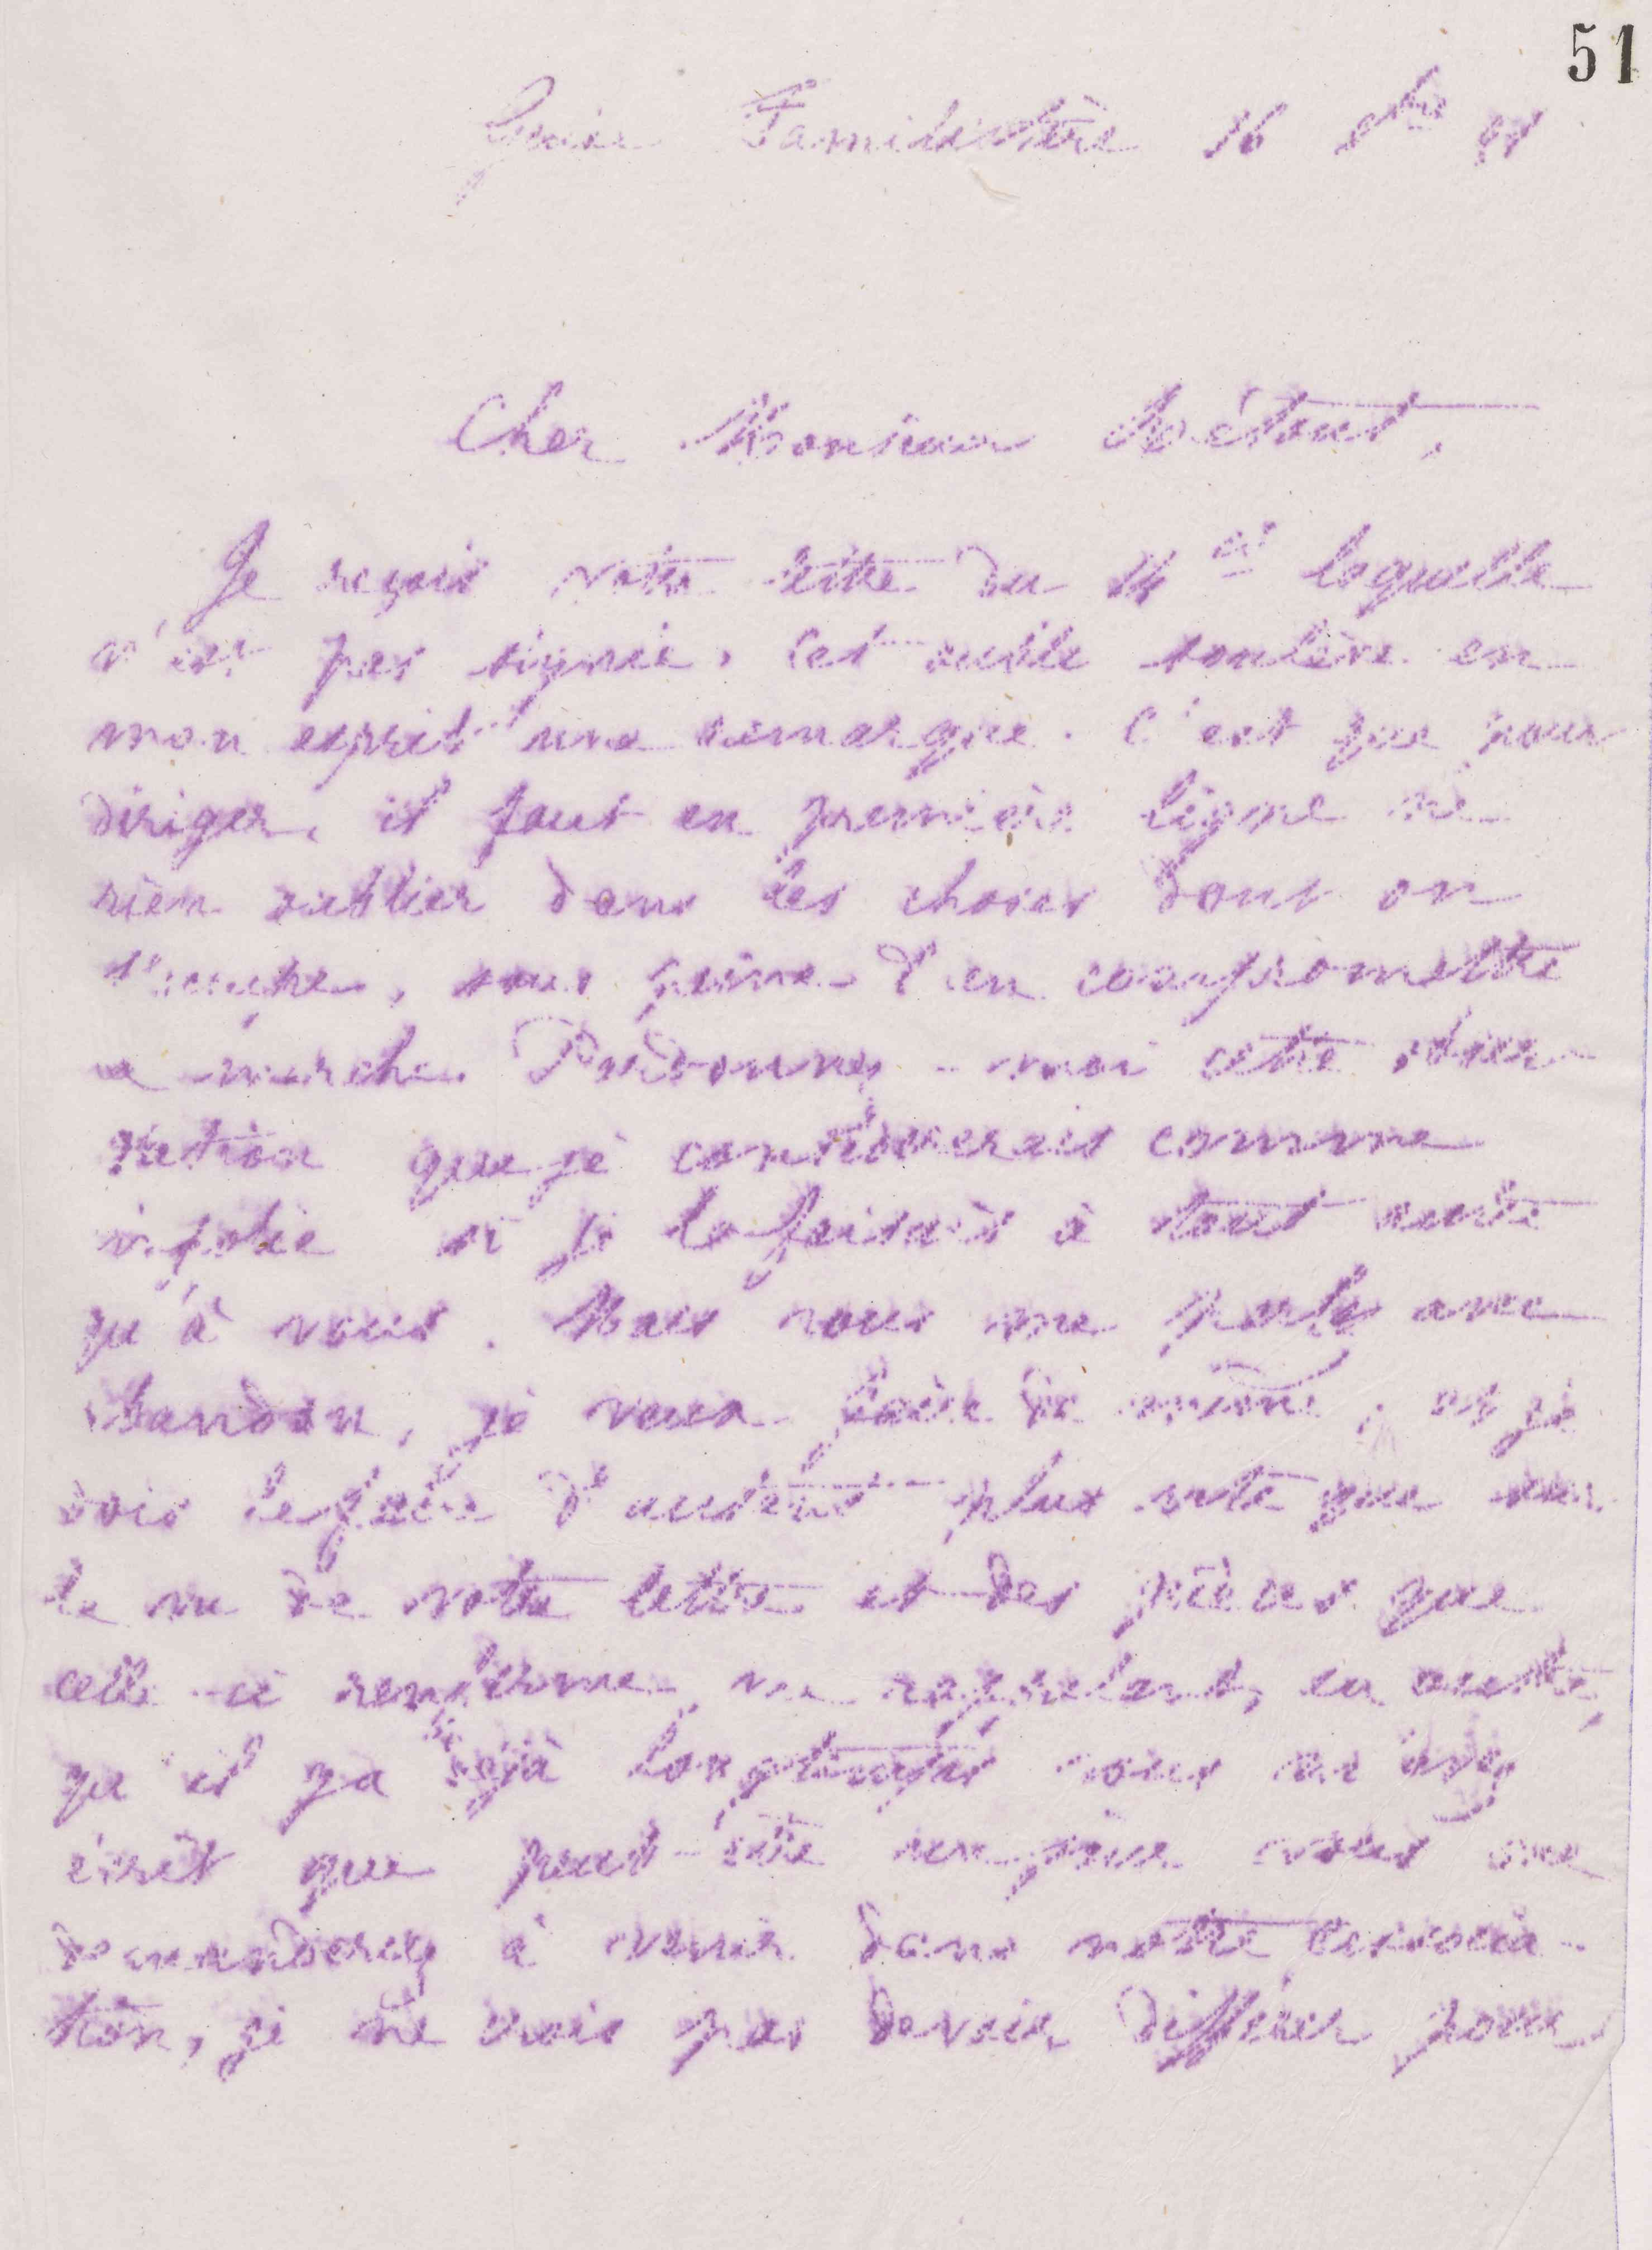 51
Guise Familistère 16 8bre
Cher Monsieur Bétout,
Je reçois votre lettre du 14 ct laquelle
n'est pas signée, cet oubli soulève en
mon esprit une remarque. C'est que pour
diriger, il faut en première ligne ne
rien oublier dans les choses dont on
s'occupe, sous peine d'en compromettre
la marche. Pardonnez-moi cette obser
vation que je considérerais comme
impolie si je la faisais à tout autre
qu'à vous. Mais vous me parlez avec
abandon, je veux faire de même, et je
dois le faire d'autant plus vite que
le vu de votre lettre et des pièces que
celle-ci renferme me rappelant, en outre,
qu'il y a déjà longtemps vous m'avez
écrit que peut-être un jour vous me
demanderez à venir dans notre associa-
tion, je ne crois pas devoir différer pour